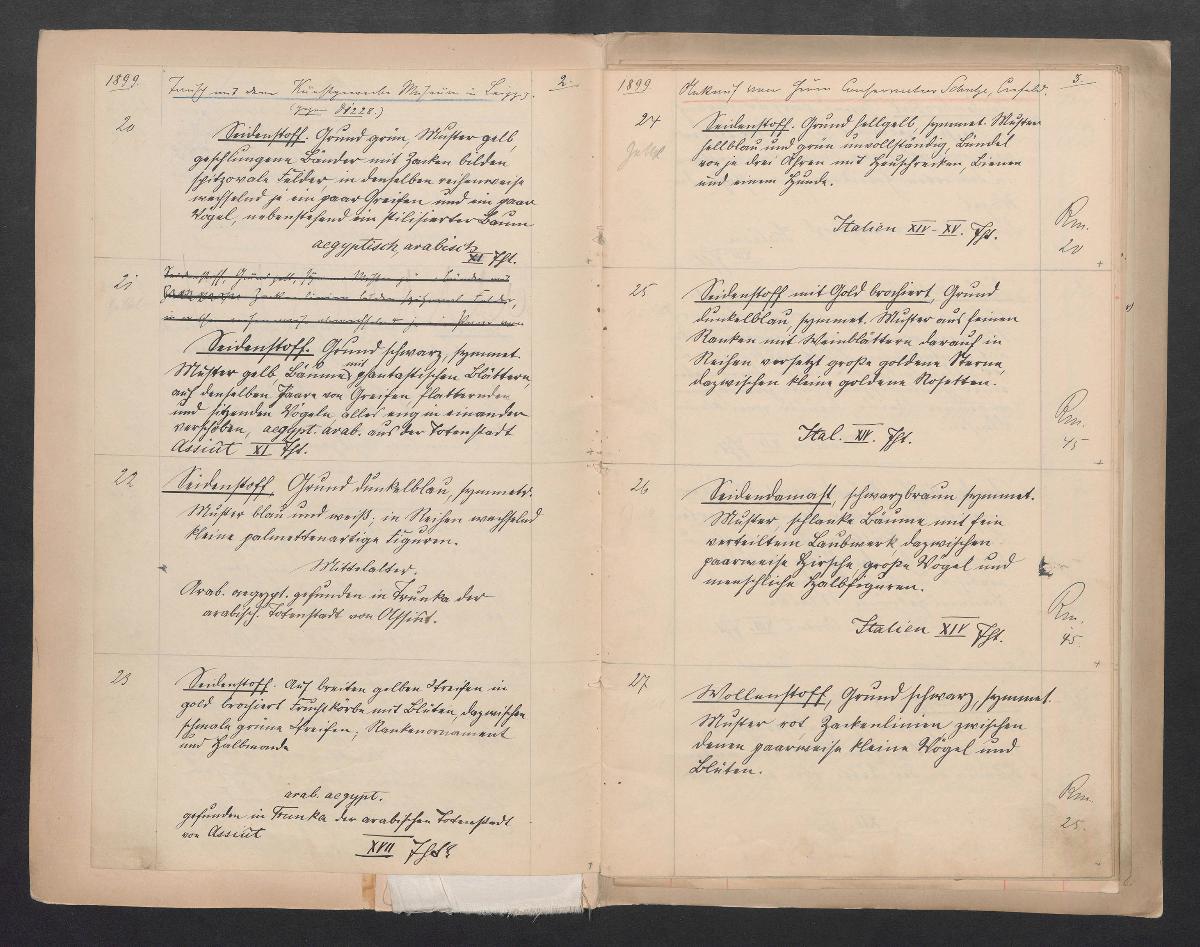 1899.
Tausch mit dem Kunstgewerbe Museum in Leipzig.
2.
(gegen 01228.)
20
Seidenstoff. Grund grün, Muster gelb,
geschlungene Bänder mit Zacken bilden
spitzovale Felder, in denselben reihenweise
wechselnd je ein paar Greifen und ein paar
Vögel, nebenstehend ein stilisierter Baum
aegyptisch, arabisch
XI Jht.
21
Seidenstoff, Grund gelb,
Zacken
Seidenstoff. Grund schwarz, symmet.
Muster gelb, Bäume mit phantastischen Blättern,
auf denselben Paare von Greifen, flatternden
und sitzenden Vögeln alles eng in einander
verschoben, aegypt. arab. aus der Totenstadt
Assiut XI Jht.
22
Seidenstoff, Grund dunkelblau, symmetr.
Muster blau und weiß; in Reihen wechselnd
kleine palmettenartige Figuren.
Mittelalter.
Arab. aegypt. gefunden in Trunka der
arabisch. Totenstadt von Assiut.
23
Seidenstoff. Auf breiten gelben Streifen in
gold brochiert Fruchtkörbe mit Blüten, dazwischen
schmale grüne Streifen; Rankenornament
und Halbmonde
arab. aegypt.
gefunden in Trunka der arabischen Totenstadt
von Assiut
XVII Jht.
1899
Ankauf von Herrn Conservator Schulze, Crefeld.
3.
24
Seidenstoff. Grund hellgelb, symmet. Muster
hellblau und grün unvollständig, Bündel
von je drei Ähren mit Heuschrecken, Bienen
und einem Hunde.
Italien XIV-XV. Jht.
Rm.
20
25
Seidenstoff mit Gold brochiert, Grund
dunkelblau, symmet. Muster aus feinen
Ranken mit Weinblättern darauf in
Reihen versetzt große goldene Sterne,
dazwischen kleine goldene Rosetten.
Ital. XIV. Jht.
Rm.
45
26
Seidendamast, schwarzbraun symmet.
Muster, schlanke Bäume mit fein
verteiltem Laubwerk, dazwischen
paarweise Hirsche, große Vögel und
menschliche Halbfiguren.
Italien XIV Jht.
Rm.
45.
27
Wollenstoff, Grund schwarz, symmet.
Muster rot, Zackenlinien zwischen
denen paarweise kleine Vögel und
Blüten.
Rm.
25.